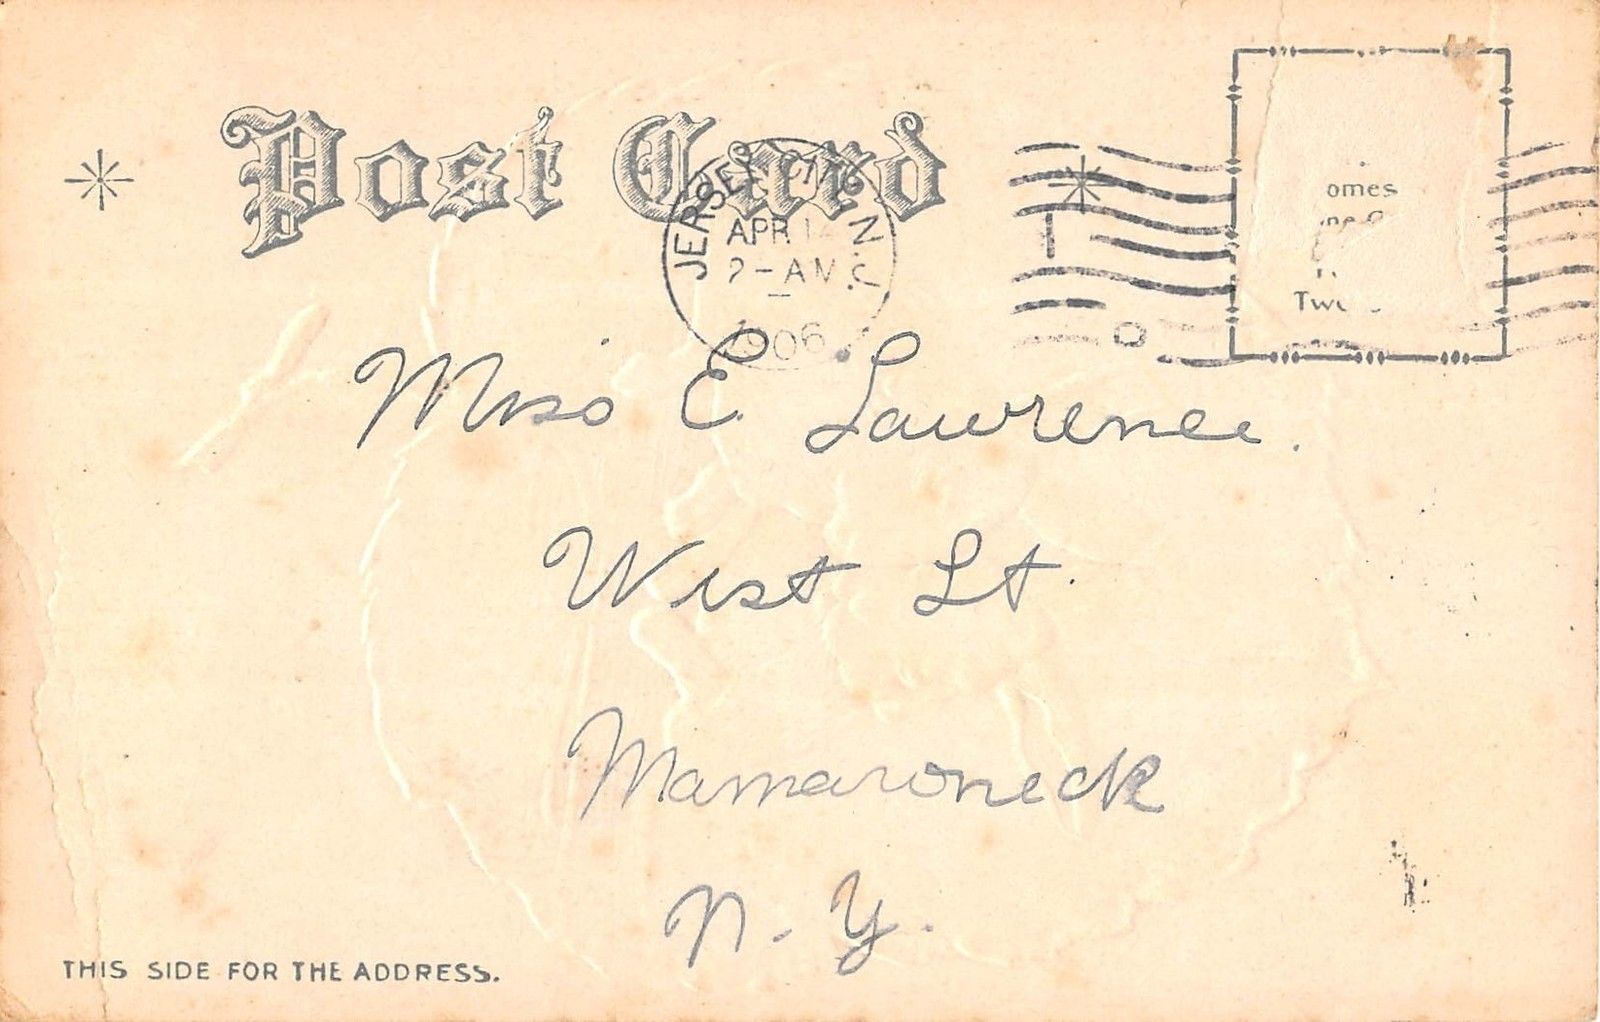 Post Card
JERSEY CITY N.J.
APR 14
2-AM
1906
omes
Miss E Lawrence.
West St.
Mamaroneck
N. Y.
THIS SIDE FOR THE ADDRESS.